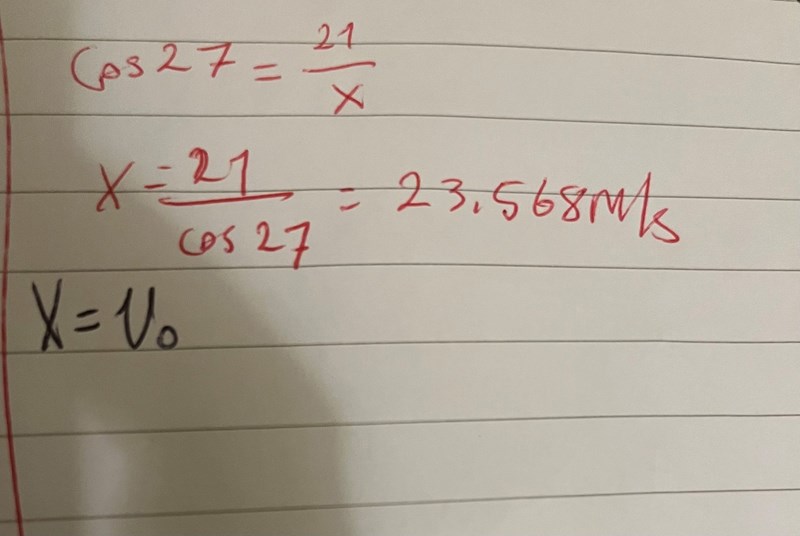 Cos 27 = 21/x
X = 21/cos 27 = 23.568 m/s
X = V₀